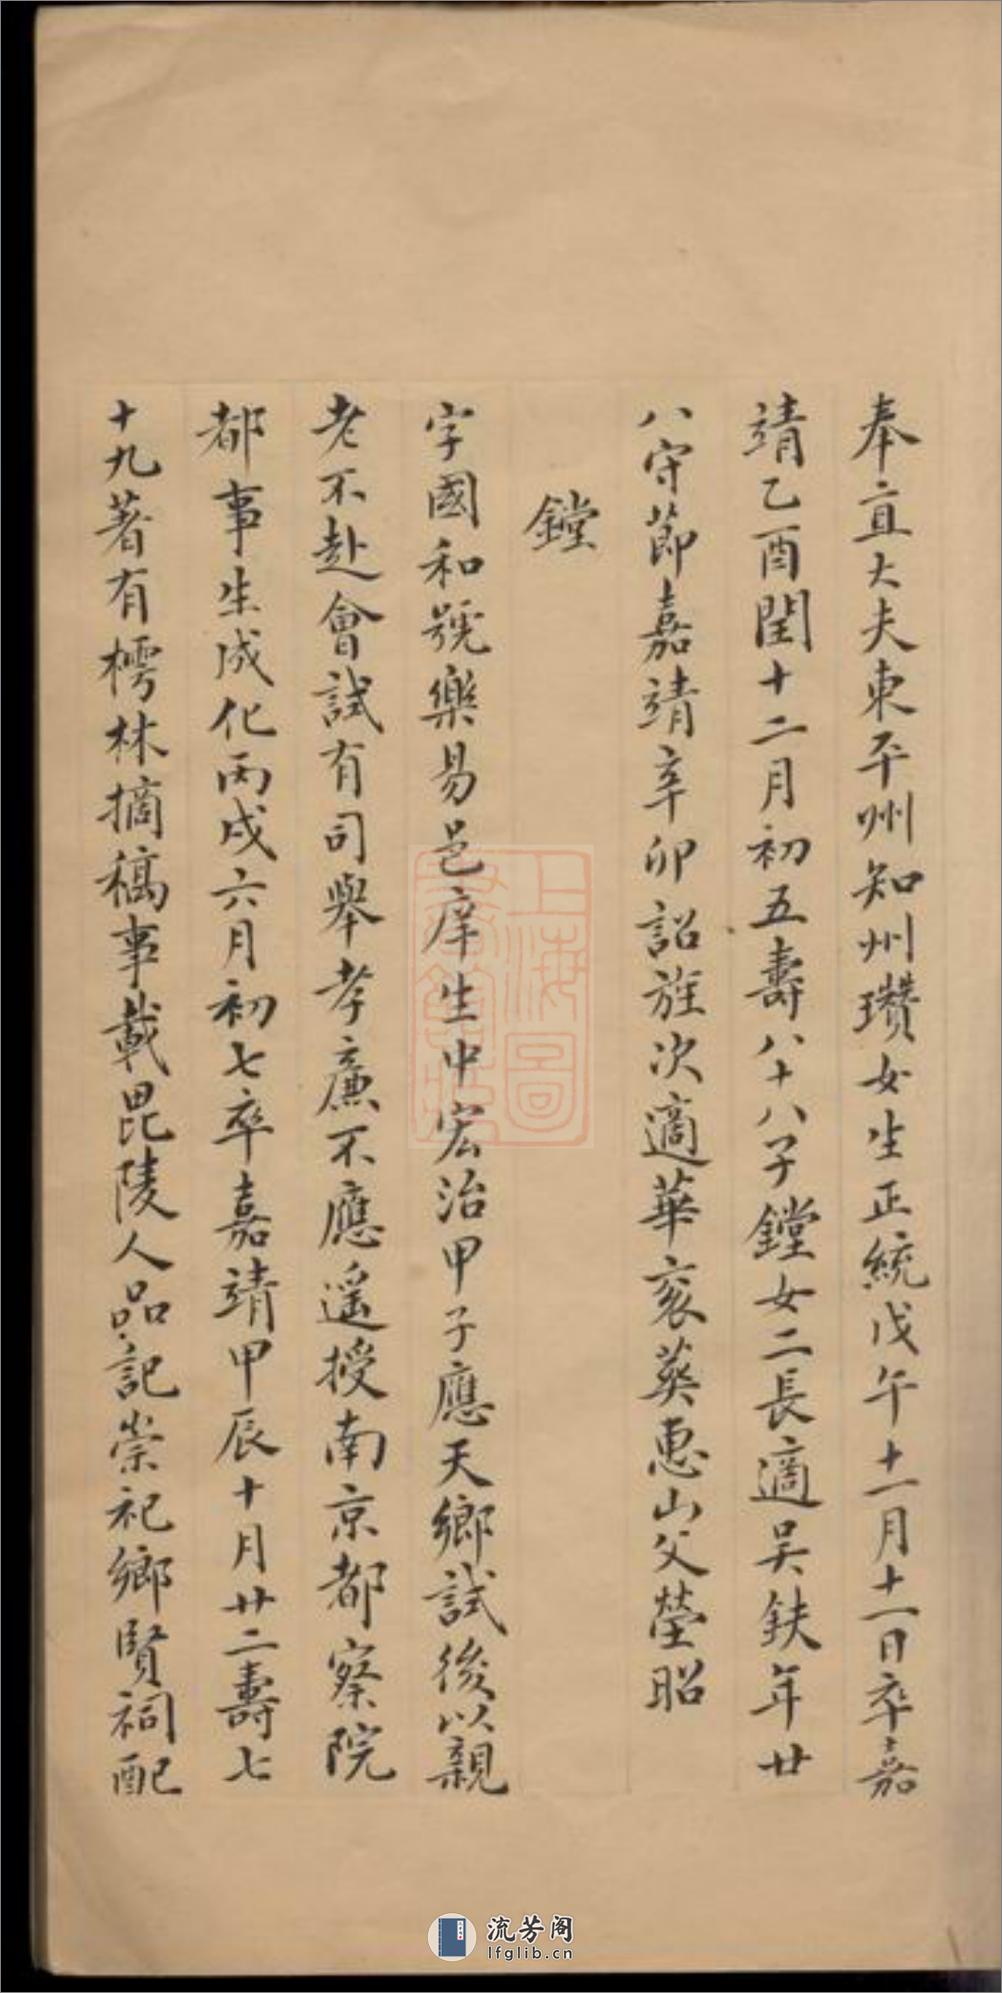 奉直大夫東平州知州瓚女生正統戊午十一月十一日卒嘉
靖乙酉閏十二月初五壽八十八子鏜女二長適吳鈇年廿
八守節嘉靖辛卯詔旌次適華袞葵惠山父塋昭
鏜
字國和號樂易邑庠生中宏治甲子應天鄉試後以親
老不赴會試有司舉孝廉不應遥授南京都察院
都事生成化丙戌六月初七卒嘉靖甲辰十月廿二壽七
十九著有樗林摘稿事載毘陵人品記崇祀鄉賢祠配
上海圖書館藏
流芳阁
lfglib.cn